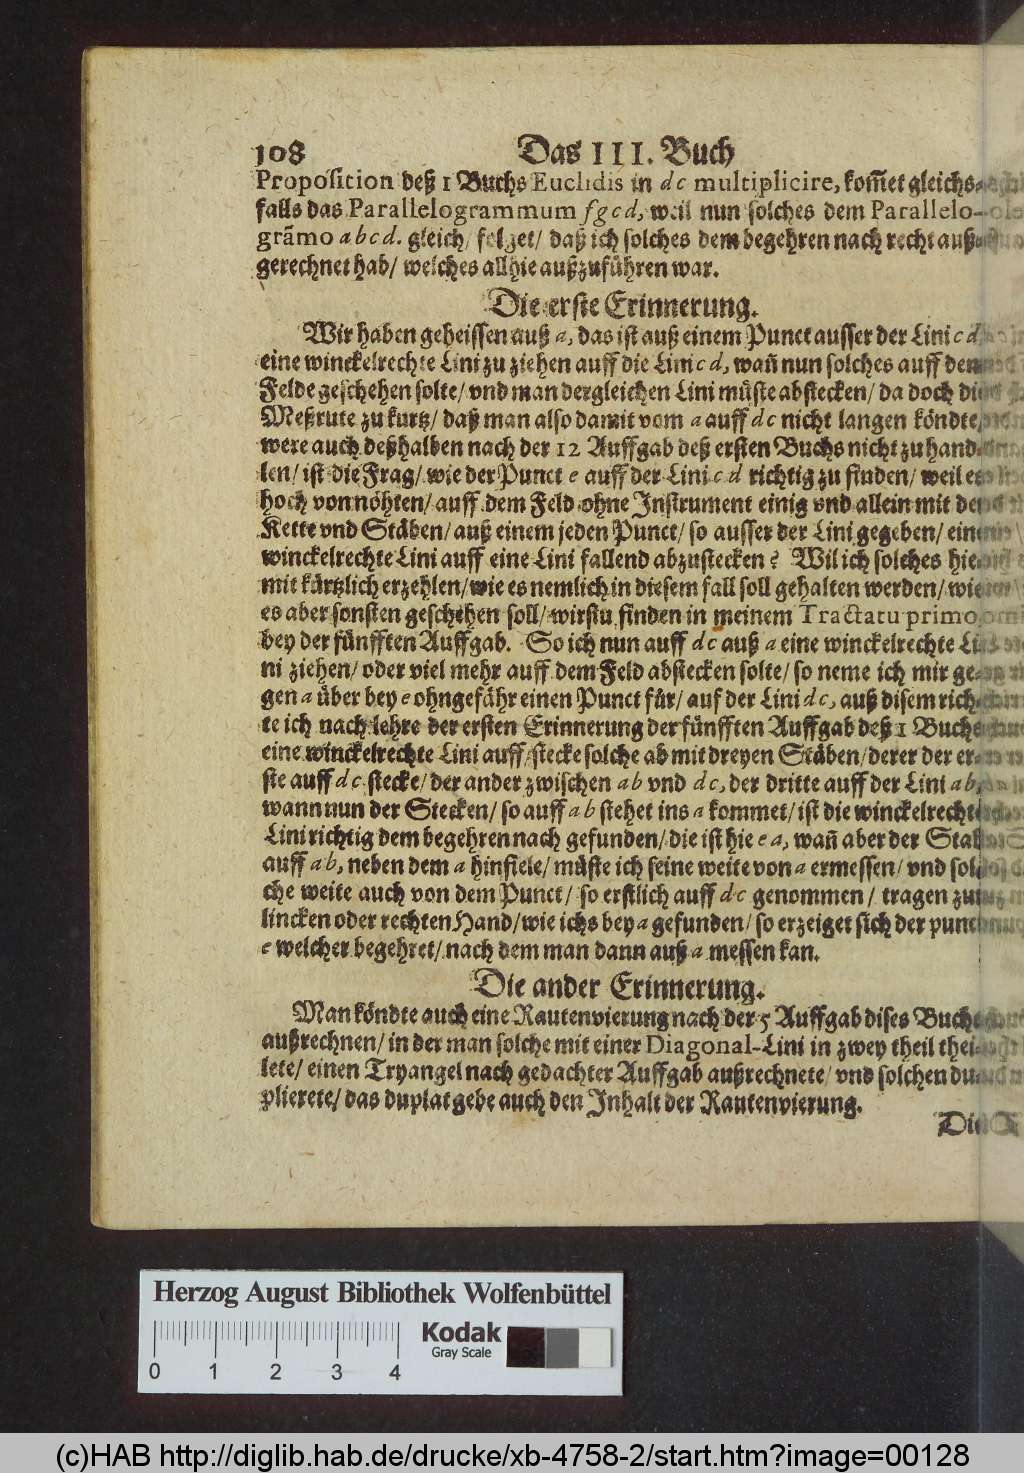 108 Das III. Buch
Proposition deß 1 Buchs Euclidis in dc multiplicire, kom̃et gleichs-
falls das Parallelogrammum fgcd, weil nun solches dem Parallelo-
grãmo abcd. gleich/ folget/ daß ich solches dem begehren nach recht auß-
gerechnet hab/ welches allhie außzuführen war.
Die erste Erinnerung.
Wir haben geheissen auß a, das ist auß einem Punct ausser der Lini cd
eine winckelrechte Lini zu ziehen auff die Lini cd, wañ nun solches auff dem
Felde geschehen solte/ vnd man dergleichen Lini müste abstecken/ da doch die
Meßrute zu kurtz/ daß man also damit vom a auff dc nicht langen köndte,
were auch deßhalben nach der 12 Auffgab deß ersten Buchs nicht zu hand-
len/ ist die Frag/ wie der Punct e auff der Lini cd richtig zu finden/ weil es
hoch vonnöhten/ auff dem Feld ohne Instrument einig vnd allein mit der
Kette vnd Stäben/ auß einem jeden Punct/ so ausser der Lini gegeben/ eine
winckelrechte Lini auff eine Lini fallend abzustecken? Wil ich solches hie
mit kürtzlich erzehlen/ wie es nemlich in diesem fall soll gehalten werden/ wie
es aber sonsten geschehen soll/ wirstu finden in meinem Tractatu primo,
bey der fünfften Auffgab. So ich nun auff dc auß a eine winckelrechte Li-
ni ziehen/ oder viel mehr auff dem Feld abstecken solte/ so neme ich mir ge-
gen a über bey e ohngefähr einen Punct für/ auf der Lini dc, auß disem rich-
te ich nach lehre der ersten Erinnerung der fünfften Auffgab deß 1 Buchs
eine winckelrechte Lini auff/ stecke solche ab mit dreyen Stäben/ derer der er-
ste auff dc stecke/ der ander zwischen ab vnd dc, der dritte auff der Lini ab,
wann nun der Stecken/ so auff ab stehet ins a kommet/ ist die winckelrechte
Lini richtig dem begehren nach gefunden/ die ist hie ea, wañ aber der Stab
auff ab, neben dem a hinfiele/ müste ich seine weite von a ermessen/ vnd sol-
che weite auch von dem Punct/ so erstlich auff dc genommen/ tragen zur
lincken oder rechten Hand/ wie ichs bey a gefunden/ so erzeiget sich der punct
e welcher begehret/ nach dem man dann auß a messen kan.
Die ander Erinnerung.
Man köndte auch eine Rautenvierung nach der 5 Auffgab dises Buchs
außrechnen/ in der man solche mit einer Diagonal-Lini in zwey theil thei-
lete/ einen Tryangel nach gedachter Auffgab außrechnete/ vnd solchen du-
plierete/ das duplat gebe auch den Inhalt der Rautenvierung.
Die
Herzog August Bibliothek Wolfenbüttel
Kodak
Gray Scale
0 1 2 3 4
(c)HAB http://diglib.hab.de/drucke/xb-4758-2/start.htm?image=00128